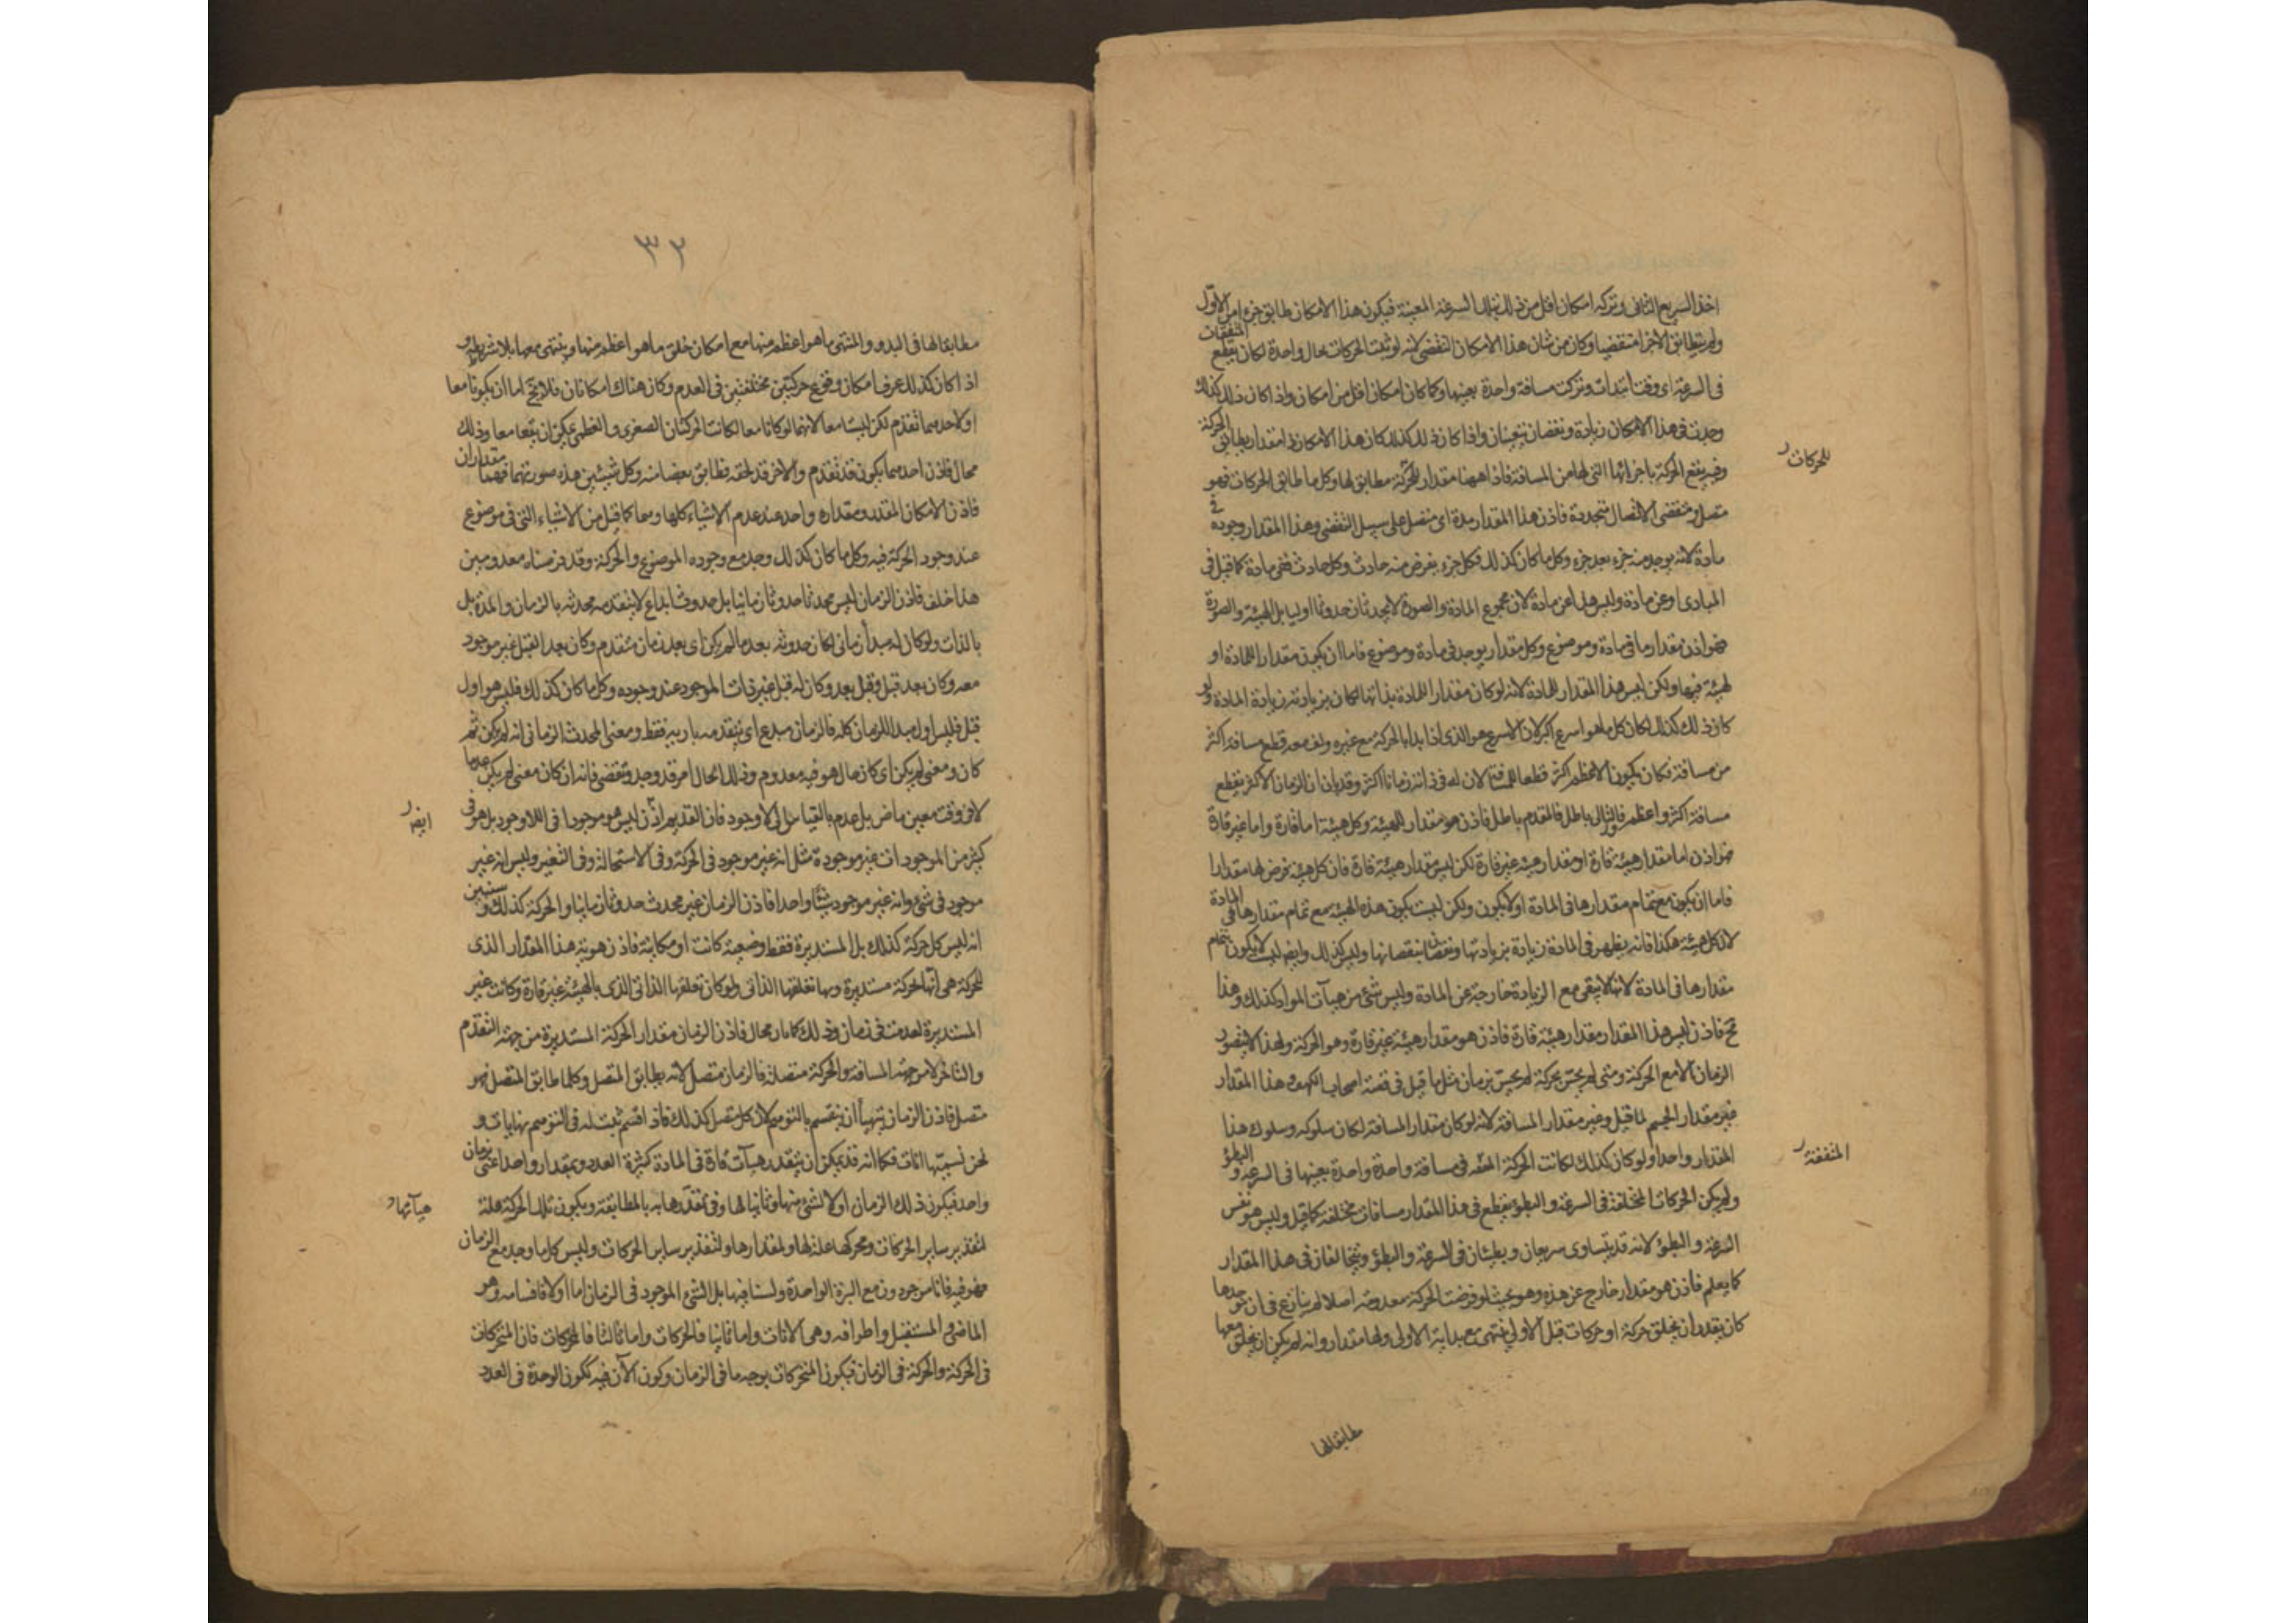 اخذ السريع الثانى وتركه امكان اقل من ذلك بتلك السرعة المعينة فيكون هذا الامكان طابق جزءا من الاول
ولم يتطابق الاخر منقضيا وكان من شان هذا الامكان التقضى لانه لو ثبت للحركات بحال واحدة لكان يقطع المتفقات
فى السرعة اى وقت ابتدات وتركت مسافة واحدة بعينها ولما كان امكان اقل من امكان واذا كان ذلك كذلك
وجدت فى هذا الامكان زيادة ونقصان يتعينان واذا كان ذلك كذلك كان هذا الامكان ذا مقدار يطابق الحركة
للحركات
وفيه يقع الحركة باجزائها التى لها من المسافة فاذا ههنا مقدار للحركة مطابق لها وكل ما طابق الحركات فهو
متصل ومنقضى الاتصال متجدده فاذن هذا المقدار مدة اى متصل على سبيل التقضى وهذا المقدار وجوده فى
مادة لانه يوجد منه جزء بعد جزء وكل ما كان كذلك فكل جزء يفرض منه حادث وكل حادث ففى مادة كما قيل فى
المبادى او عن مادة وليس هذا عن مادة لان مجموع المادة والصورة لا يحدثان حدوثا اوليا بل الهيئة والصورة
فهو اذن مقدار ما فى مادة وموضوع وكل مقدار يوجد فى مادة وموضوع فاما ان يكون مقدارا للمادة او
لهيئة فيها ولكن ليس هذا المقدار للمادة لانه لو كان مقدارا للمادة بذاتها لكان بزيادته زيادة المادة ولو
كان ذلك كذلك لكان كل ما هو اسرع اكبر لان الاسرع هو الذى اذا بدا بالحركة مع غيره وقف معه قطع مسافة اكثر
من مسافته فكان يكون الاعظم اكثر قطعا للمسافة لان له فى ذاته زمانا اكثر وقد بان ان الزمان الاكثر يقطع
مسافة اكثر واعظم فالتالى باطل فالمقدم باطل فاذن هو مقدار للهيئة وكل هيئة اما قارة واما غير قارة
فهو اذن اما مقدار هيئة قارة او مقدار هيئة غير قارة لكن ليس مقدار هيئة قارة فان كل هيئة يفرض لها مقدارا
فاما ان يكون مع تمام مقدارها فى المادة او لا يكون ولكن ليست يكون هذه الهيئة مع تمام مقدارها فى المادة
لان كل هيئة هكذا فانه يظهر فى المادة زيادة بزيادتها ونقصان بنقصانها وليس كذلك وايضا ليست لا يكون بتمام
مقدارها فى المادة لانها لا تبقى مع الزيادة خارجة عن المادة وليس شئ من هيآت المواد كذلك وهذا
مح فاذن ليس هذا المقدار مقدار هيئة قارة فاذن هو مقدار هيئة غير قارة وهو الحركة ولهذا لا يتصور
الزمان الا مع الحركة ومتى لم يحس بحركة لم يحس بزمان مثل ما قيل فى قصة اصحاب الكهف وهذا المقدار
غير مقدار الجسم لما قيل وغير مقدار المسافة لانه لو كان مقدار المسافة لكان سلوكه وسلوك هذا
المقدار واحدا ولو كان كذلك لكانت الحركة المتفقة فى مسافة واحدة واحدة بعينها فى السرعة والبطؤ
المتفقة
ولم يكن الحركات المختلفة فى السرعة والبطؤ يقطع فى هذا المقدار مسافات مختلفة كما قيل وليس هو نفس
السرعة والبطؤ لانه قد يتساوى سريعان وبطيئان فى السرعة والبطؤ ويتخالفان فى هذا المقدار
كما يعلم فاذن هو مقدار خارج عن هذه وهو بحيث لو فرضت الحركة معدومة اصلا لم ينازع فى ان موجدها
كان يقدر ان يخلق حركة او حركات قبل الاولى ينتهى مع بداية الاولى ولها مقدار وانه لم يكن ان يخلق معها
مطابقا لها
٣٢
مطابقا لها فى البدو والمنتهى ما هو اعظم منها مع امكان خلق ما هو اعظم منها وينتهى معها بلا شرط و
اذا كان كذلك عرف امكان وقوع حركتين مختلفتين فى العدم وكان هناك امكانان فلا يخ اما ان يكونا معا
او لاحدهما تقدم لكن ليسا معا لانهما لو كانا معا لكانت الحركتان الصغرى والعظمى يمكن ان يقعا معا وذلك
محال فاذن احدهما يكون قد تقدم والاخر قد لحقه وطابق بعضا منه وكل شيئين هذه صورتهما فهما مقداران
فاذن الامكان المقدر ومقداره واحد عند عدم الاشياء كلها ومعا كما قيل من الاشياء التى فى موضوع
عند وجود الحركة فيه وكل ما كان كذلك وجد مع وجوده الموضوع والحركة وقد فرضناه معدومين
هذا خلف فاذن الزمان ليس محدثا حدوثا زمانيا بل حدوث ابداع لا يتقدمه محدثه بالزمان والمدة بل
بالذات ولو كان له مبدأ زمانى لكان حدوثه بعد ما لم يكن اى بعد زمان متقدم وكان بعدا لقبل غير موجود
معه وكان بعد قبل وقبل بعد وكان له قبل غير ذات الموجود عند وجوده وكل ما كان كذلك فليس هو اول
قبل فليس اول مبدا للزمان كله فالزمان مبدع اى يتقدمه باريه فقط ومعنى المحدث الزمانى انه لم يكن ثم
كان ومعنى لم يكن اى كان حال هو فيه معدوم وذلك الحال امر قد وجد وتقضى فانه ان كان معنى لم يكن عدما
لا فى وقت معين ماض بل عدم بالقياس الى لا وجود فان القديم اذن ليس هو موجودا فى اللا وجود بل هو فى
ايضا
كثير من الموجودات غير موجودة مثل انه غير موجود فى الحركة وفى الاستحالة وفى التغير وليس انه غير
موجود فى شئ وانه غير موجود شيئا واحدا فاذن الزمان غير محدث حدوثا زمانيا والحركة كذلك وسنبين
انه ليس كل حركة كذلك بل المستديرة فقط وضعية كانت او مكانية فاذن هوية هذا المقدار الذى
للحركة هى انها لحركة مستديرة وبها تعلقها الذاتى ولو كان تعلقها الذاتى الذى بالهيئة غير قارة وكانت غير
المستديرة لعدمت فى زمان وذلك كما بان محال فاذن الزمان مقدار الحركة المستديرة من جهة التقدم
والتاخر لا من جهة المسافة والحركة متصلة فالزمان متصل لانه يطابق المتصل وكلما طابق المتصل فهو
متصل فاذن الزمان يتهيأ ان ينقسم بالتوهم لان كل متصل كذلك فاذا قسم ثبت له فى التوهم نهايات و
نحن نسميها اآنات فكما انه قد يمكن ان يتقدر هيآت قارة فى المادة كثيرة العدد وبمقدار واحد اعنى بزمان
واحد فيكون ذلك الزمان اولا لشئ منها وثانيا لها وفى تقدرها به بالمطابقة ويكون تلك الحركة علة
هيآتها
لتقدير ساير الحركات ومحركها علة لها ولمقدارها ولتقدير ساير الحركات وليس كل ما وجد مع الزمان
فهو فيه فانا موجودون مع البرة الواحدة ولسنا فيها بل الشئ الموجود فى الزمان اما اولا فاقسامه وهو
الماضى والمستقبل واطرافه وهى الآنات واما ثانيا فالحركات واما ثالثا فالمتحركات فان المتحركات
فى الحركة والحركة فى الزمان فيكون المتحركات بوجه ما فى الزمان وكون الآن فيه ككون الوحدة فى العدد